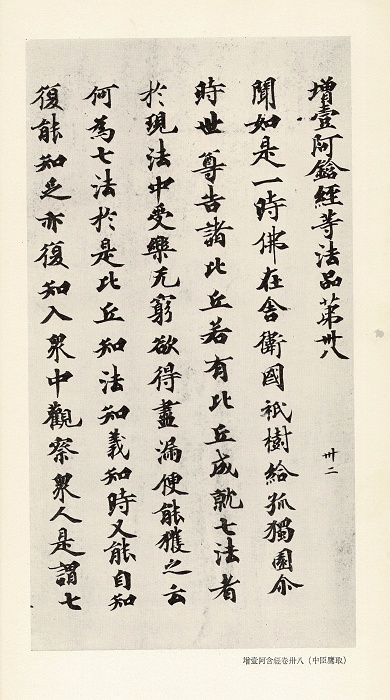 增壹阿鋡經等法品苐卅八
卅二
聞如是一時佛在舍衛國祇樹給孤獨園尒
時世尊告諸比丘若有比丘成就七法者
於現法中受樂无窮欲得盡漏便能獲之云
何為七法於是比丘知法知義知時又能自知
復能知足亦復知入衆中觀察衆人是謂七
增壹阿含經卷卅八（中臣鷹取）